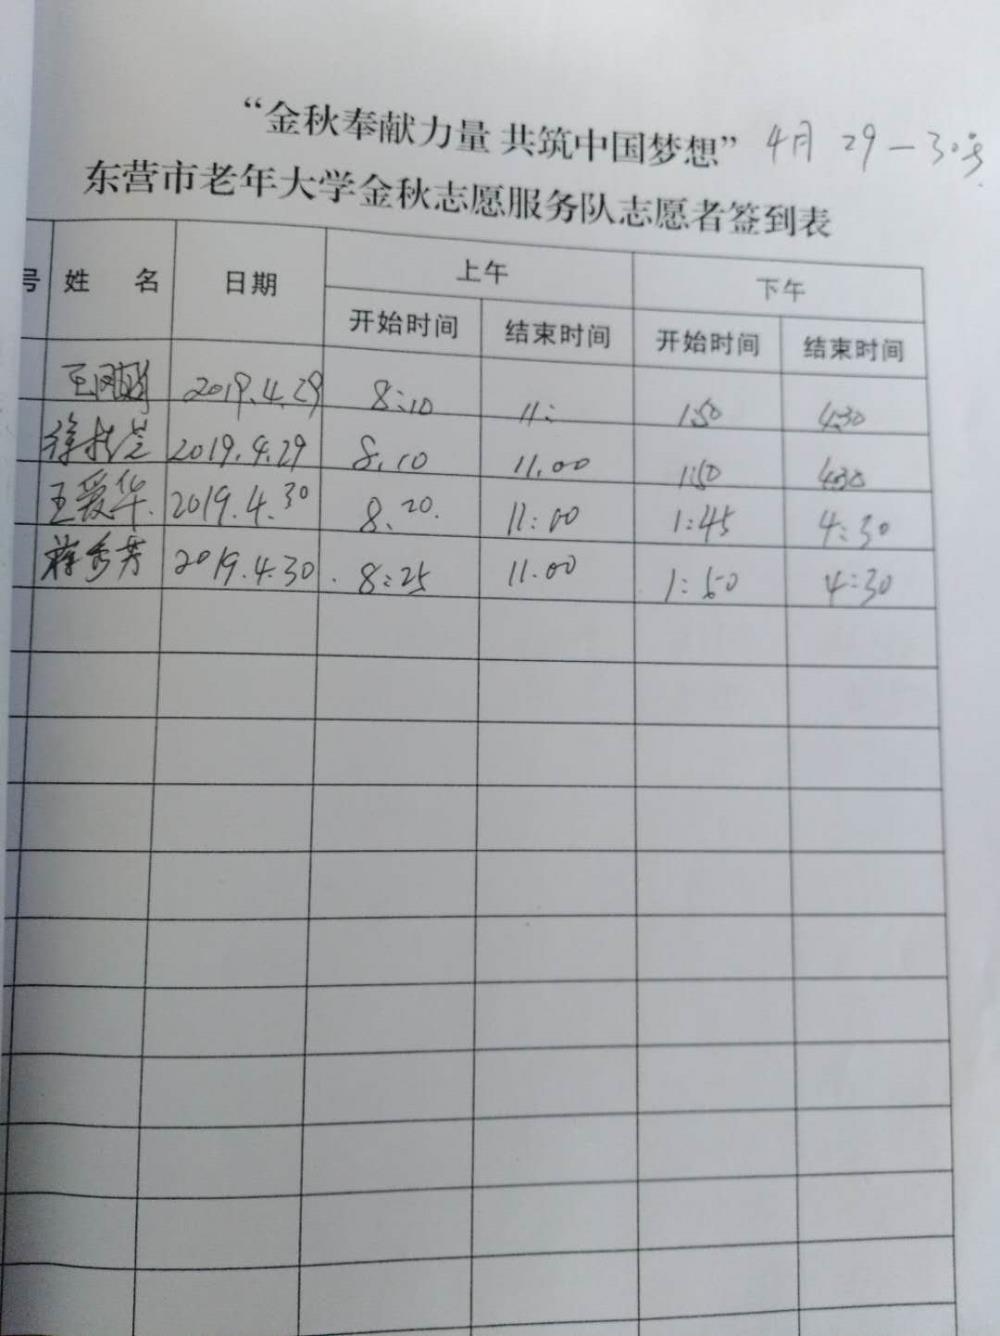 “金秋奉献力量 共筑中国梦想” 4月29-30号
东营市老年大学金秋志愿服务队志愿者签到表
号 姓 名 日期 上午 下午
开始时间 结束时间 开始时间 结束时间
2019.4.29 8:10 11: 1:50 4:30
徐 2019.4.29 8.10 11.00 1:50 4:30
王爱华. 2019.4.30 8.20. 11:00 1:45 4:30
蒋秀芳 2019.4.30 8:25 11.00 1:50 4:30